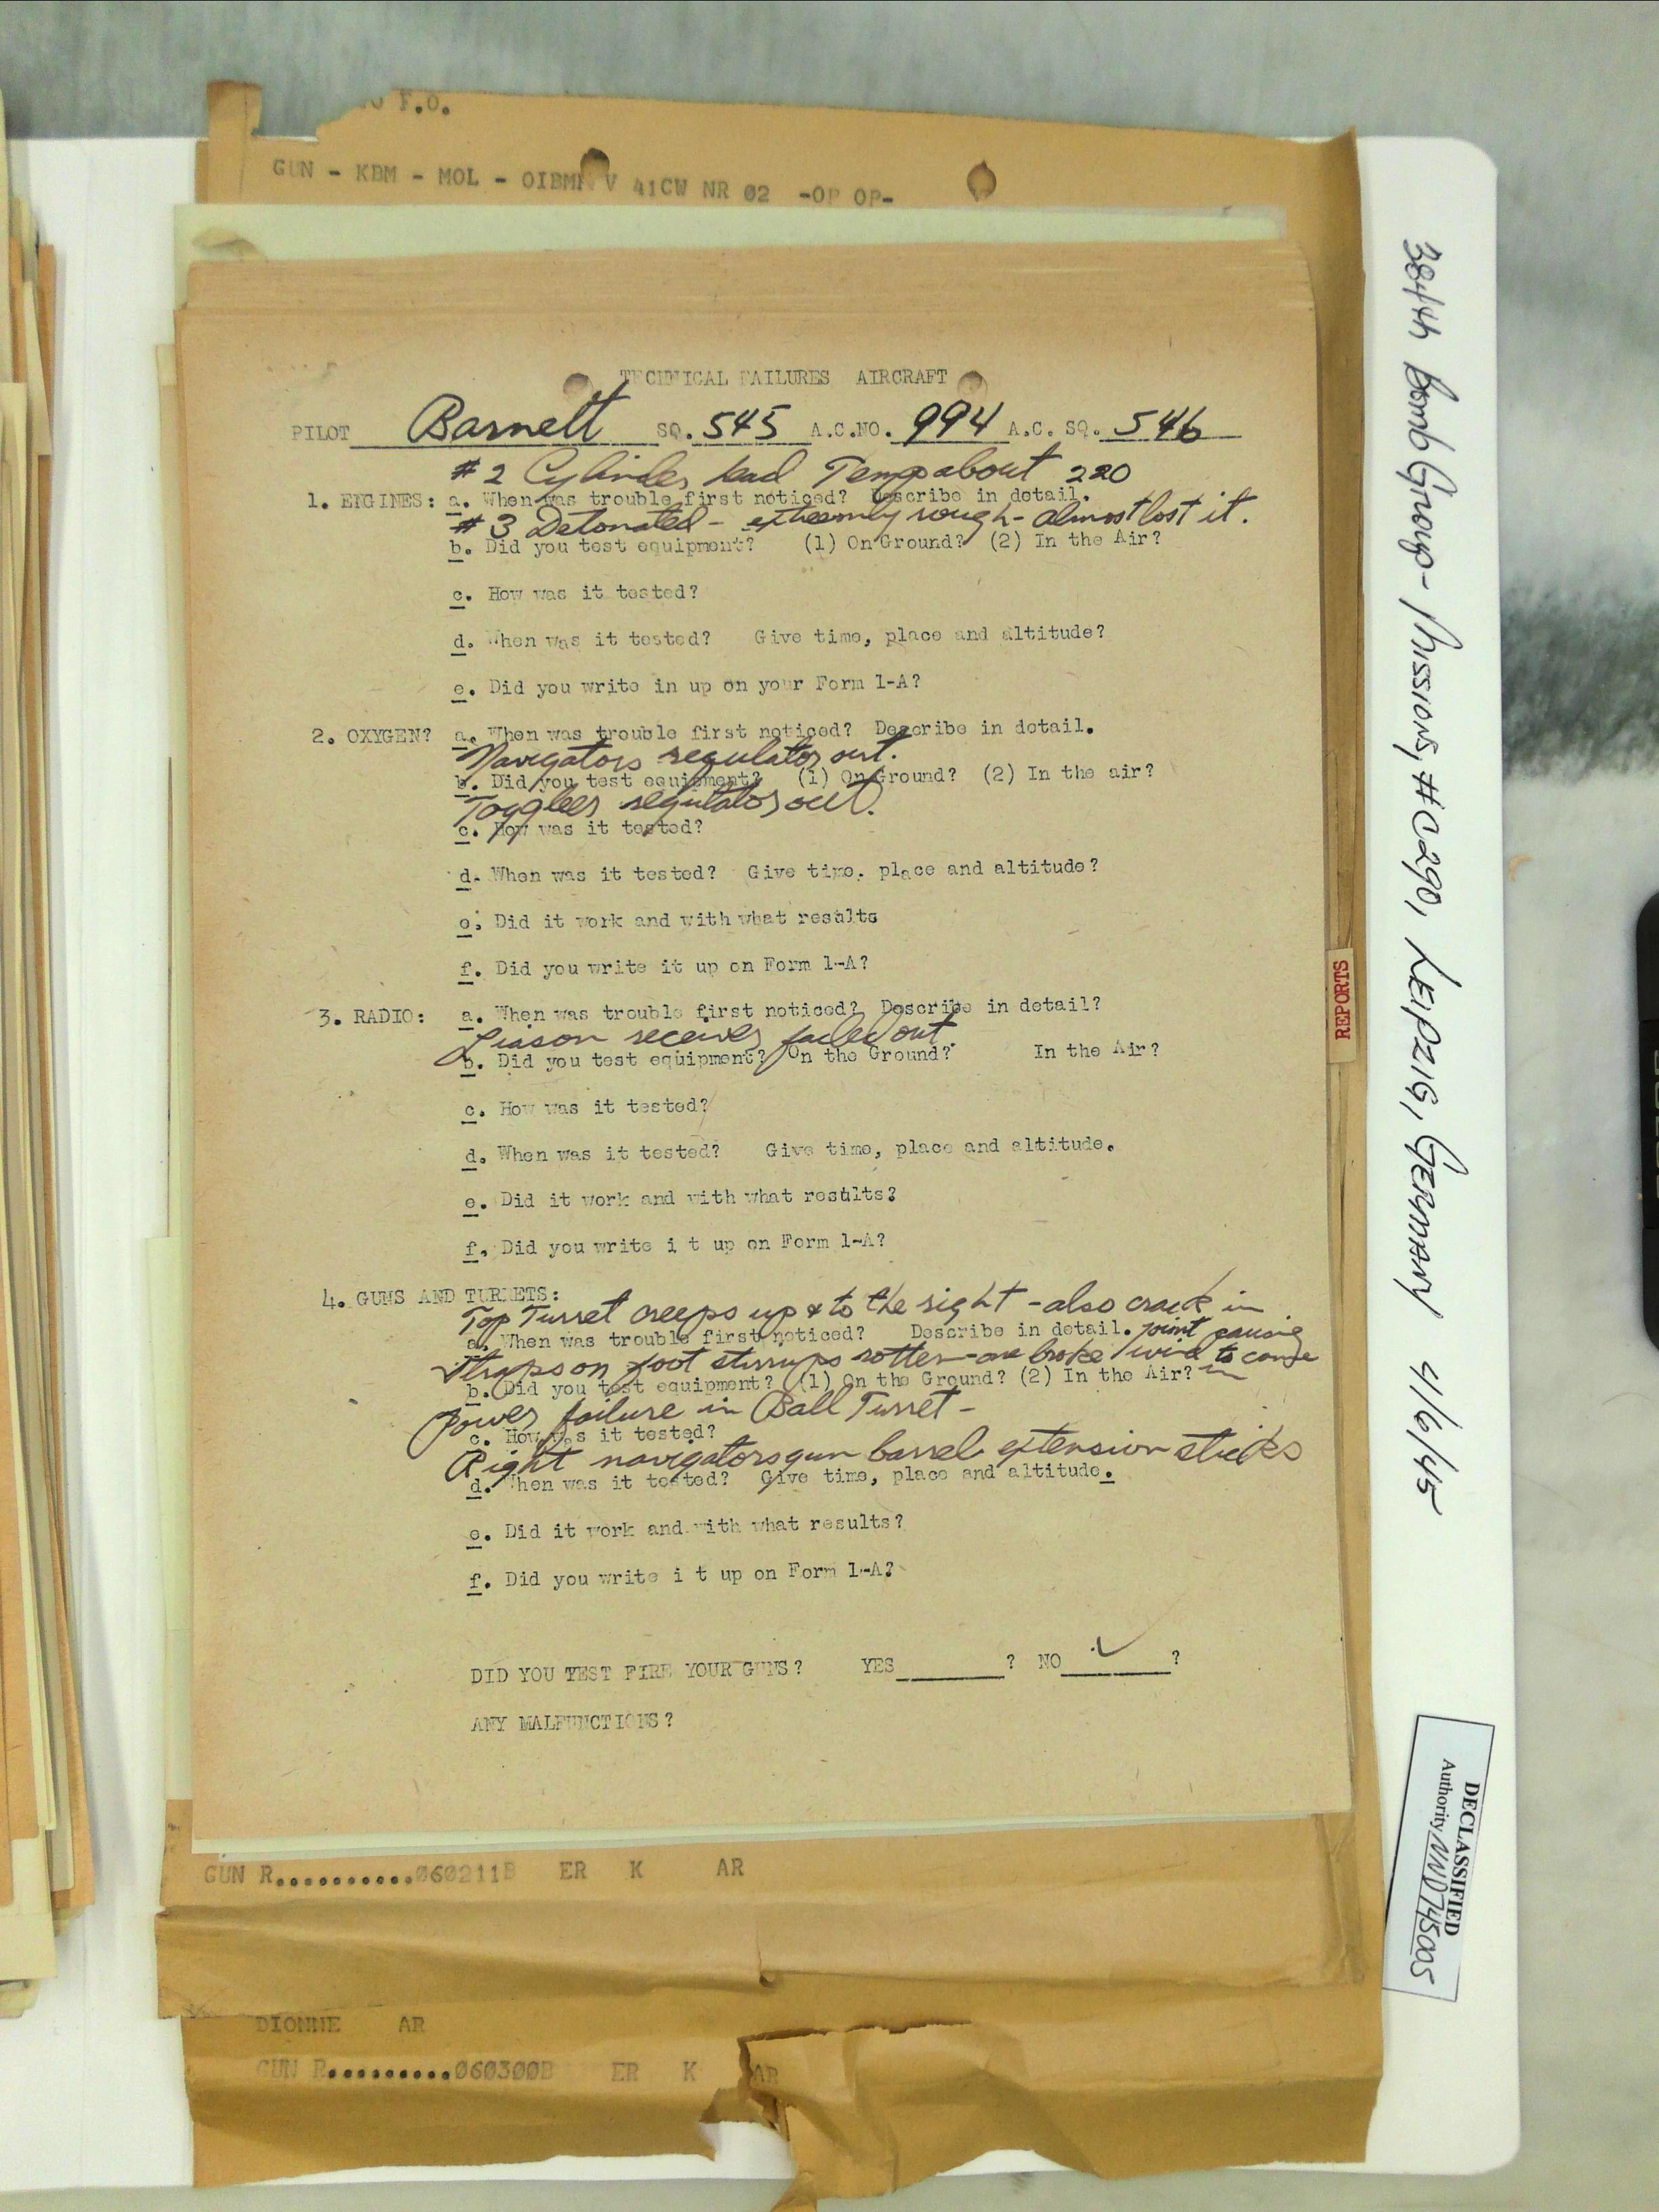 F.O.
GUN - KBM - MOL - OIBMR V 41CW NR 02 -OP OP-
TECHNICAL FAILURES AIRCRAFT
PILOT Barnett SQ. 545 A.C.NO. 994 A.C. SQ. 546
#2 Cylinder head Temp about 220
1. ENGINES: a. When was trouble first noticed? Describe in detail.
#3 Detonated - extreemly rough - almost lost it.
b. Did you test equipment? (1) On Ground? (2) In the Air?
c. How was it tested?
d. When was it tested? Give time, place and altitude?
e. Did you write in up on your Form 1-A?
2. OXYGEN? a. When was trouble first noticed? Describe in detail.
Navigators regulator out.
b. Did you test equipment? (1) On Ground? (2) In the air?
Togglers regulator out.
c. How was it tested?
d. When was it tested? Give time. place and altitude?
e. Did it work and with what results
f. Did you write it up on Form 1-A?
3. RADIO: a. When was trouble first noticed? Describe in detail?
Liason receiver faded out.
b. Did you test equipment? On the Ground? In the Air?
c. How was it tested?
d. When was it tested? Give time, place and altitude.
e. Did it work and with what results?
f. Did you write i t up on Form 1-A?
4. GUNS AND TURRETS:
Top Turret creeps up & to the right - also crack in
a. When was trouble first noticed? Describe in detail. joint causing
Straps on foot stirrups rotten - one broke / wind to come
b. Did you test equipment? (1) On the Ground? (2) In the Air? in
Power failure in Ball Turret -
c. How was it tested?
Right navigators gun barrel extension sticks
d. When was it tested? Give time, place and altitude.
e. Did it work and with what results?
f. Did you write i t up on Form 1-A?
DID YOU TEST FIRE YOUR GUNS? YES ? NO ✓ ?
ANY MALFUNCTIONS?
GUN R..........060211B ER K AR
DIONNE AR
GUN R..........060300B ER K AR
REPORTS
384th Bomb Group - Missions, #290, LEIPZIG, GERMANY 4/6/45
DECLASSIFIED
Authority NND745005